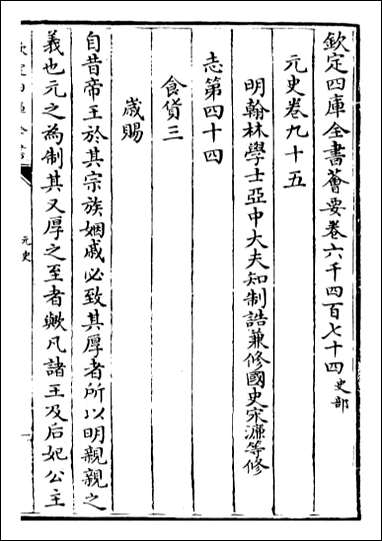 欽定四庫全書薈要卷六千四百七十四 史部
元史卷九十五
明翰林學士亞中大夫知制誥兼修國史宋濂等修
志第四十四
食貨三
歲賜
自昔帝王於其宗族姻戚必致其厚者所以明親親之
義也元之為制其又厚之至者歟凡諸王及后妃公主
元史